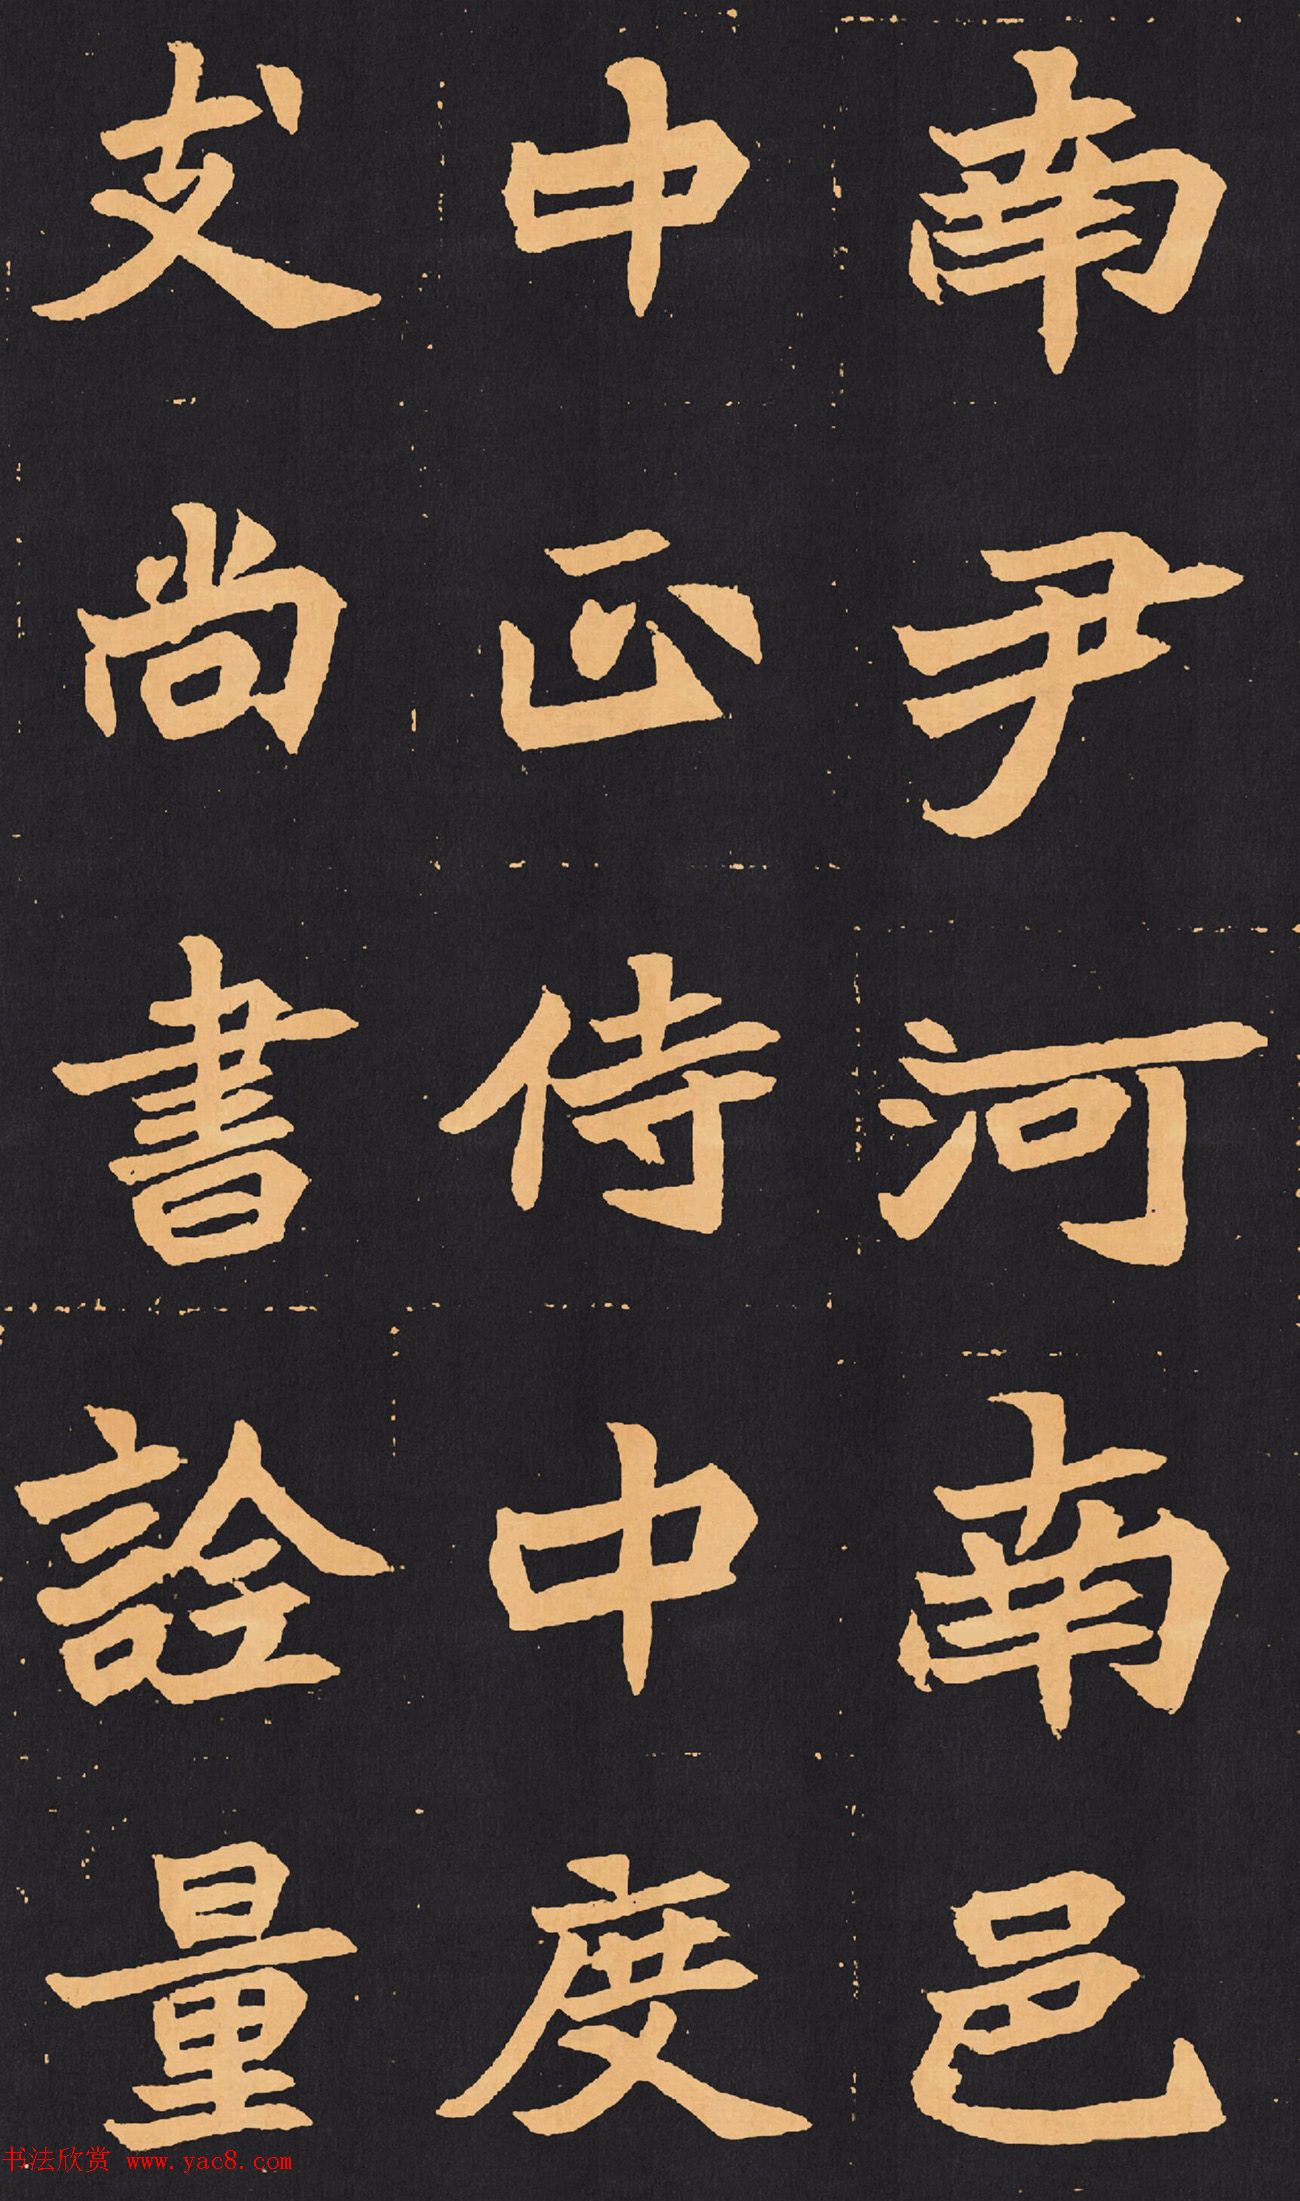 南尹河南邑
中正侍中度
支尚書詮量
书法欣赏 www.yac8.com